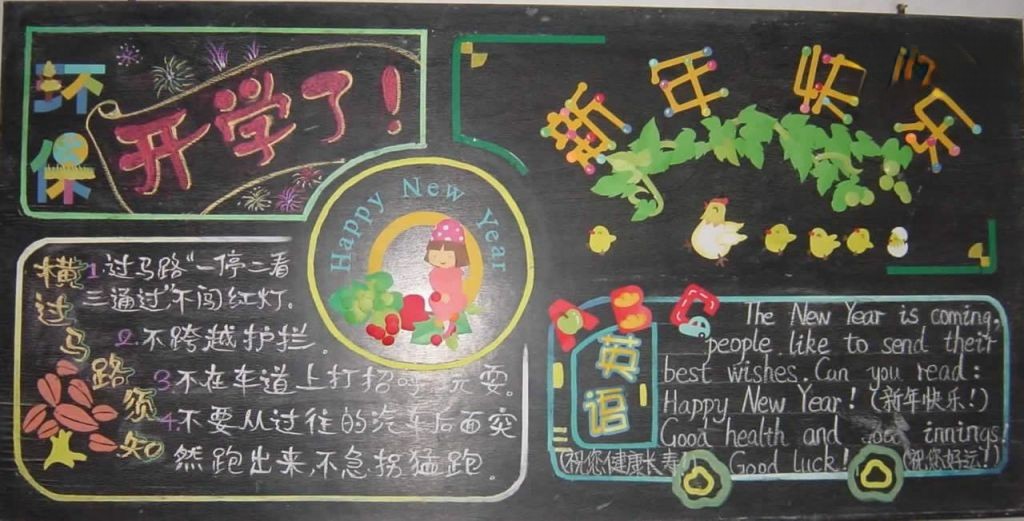 环保
开学了!
新年快乐
Happy New Year
横过马路须知
1.过马路“一停二看
三通过”不闯红灯.
2.不跨越护拦。
3.不在车道上打招呼 玩耍。
4.不要从过往的汽车后面突
然跑出来,不急拐猛跑.
A B C
英语
The New Year is coming,
people like to send their
best wishes. Can you read:
Happy New Year! (新年快乐!)
Good health and innings
(祝您健康长寿!) Good luck! (祝您好运!)